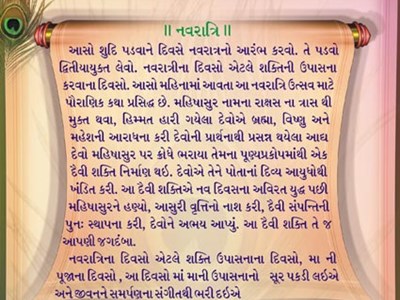 ॥ નવરાત્રિ ॥
આસો શુદિ પડવાને દિવસે નવરાત્રનો આરંભ કરવો. તે પડવો
દ્વિતીયાયુક્ત લેવો. નવરાત્રીના દિવસો એટલે શક્તિની ઉપાસના
કરવાના દિવસો. આસો મહિનામાં આવતા આ નવરાત્રિ ઉત્સવ માટે
પૌરાણિક કથા પ્રસિદ્ધ છે. મહિષાસુર નામના રાક્ષસ ના ત્રાસ થી
મુક્ત થવા, હિમ્મત હારી ગયેલા દેવોએ બ્રહ્મા, વિષ્ણુ અને
મહેશની આરાધના કરી દેવોની પ્રાર્થનાથી પ્રસન્ન થયેલા આદ્ય
દેવો મહિષાસુર પર ક્રોધે ભરાયા તેમના પૂણ્યપ્રકોપમાંથી એક
દૈવી શક્તિ નિર્માણ થઇ. દેવોએ તેને પોતાનાં દિવ્ય આયુધોથી
ખંડિત કરી. આ દૈવી શક્તિએ નવ દિવસના અવિરત યુદ્ધ પછી
મહિષાસુરને હણ્યો, આસુરી વૃત્તિનો નાશ કરી, દૈવી સંપત્તિની
પુનઃ સ્થાપના કરી, દેવોને અભય આપ્યું. આ દૈવી શક્તિ તે જ
આપણી જગદંબા.
નવરાત્રિના દિવસો એટલે શક્તિ ઉપાસનાના દિવસો, મા ની
પૂજાના દિવસો , આ દિવસો માં માની ઉપાસનાનો સૂર પકડી લઇએ
અને જીવનને સમર્પણના સંગીતથી ભરી દઇએ